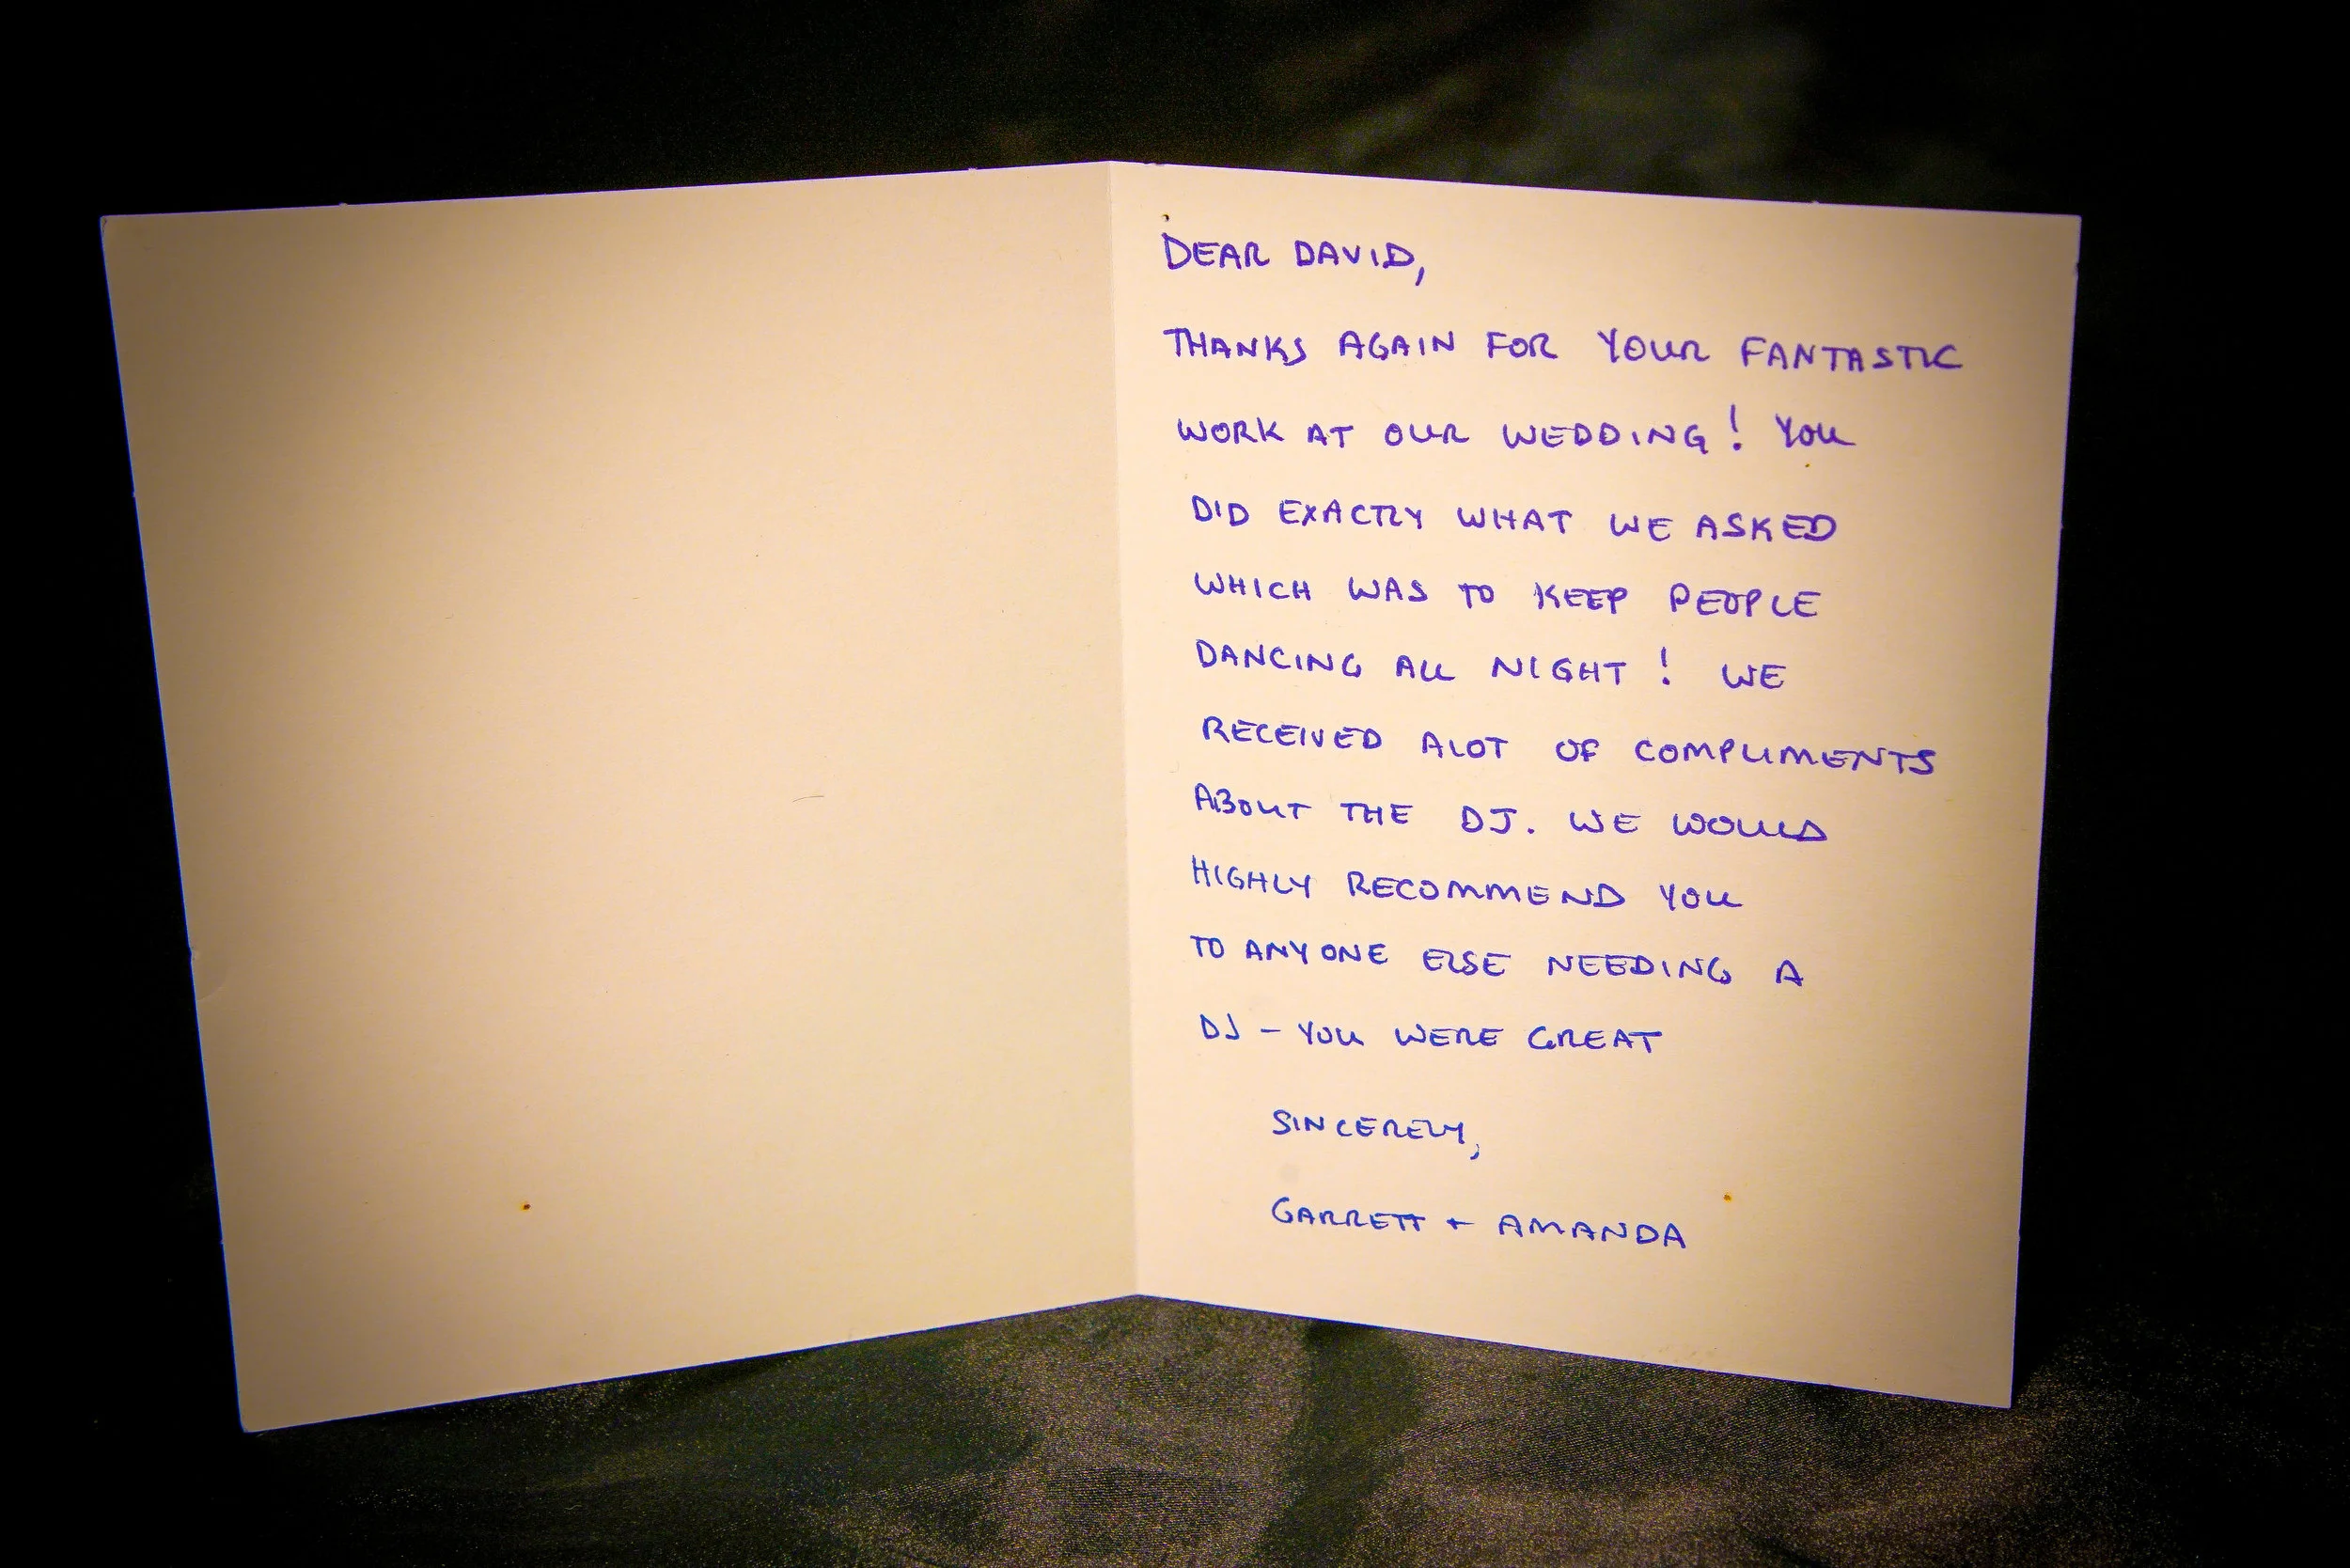 DEAR DAVID,
THANKS AGAIN FOR YOUR FANTASTIC
WORK AT OUR WEDDING! YOU
DID EXACTLY WHAT WE ASKED
WHICH WAS TO KEEP PEOPLE
DANCING ALL NIGHT! WE
RECEIVED ALOT OF COMPLIMENTS
ABOUT THE DJ. WE WOULD
HIGHLY RECOMMEND YOU
TO ANYONE ELSE NEEDING A
DJ - YOU WERE GREAT
SINCERELY,
GARRETT + AMANDA